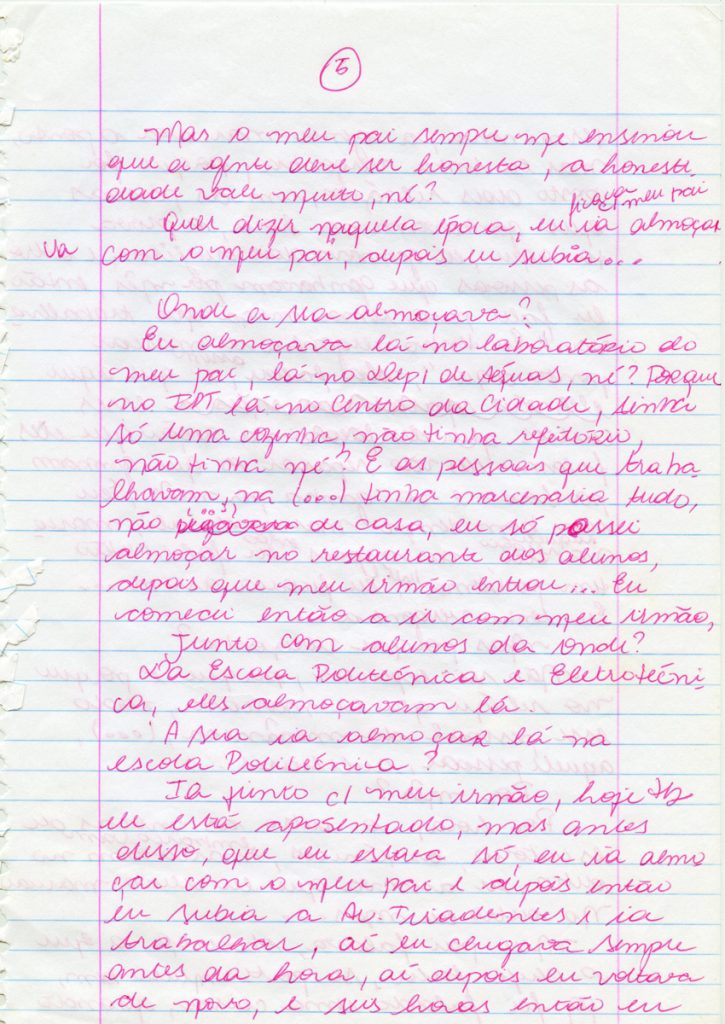 5
Mas o meu pai sempre me ensinou
que a gente deve ser honesta, a honesti
dade vale muito, né?
ficava c/ meu pai
Quer dizer naquela época, eu ia almoçar
Va com o meu pai, depois eu subia...
Onde a sra almoçava?
Eu almoçava lá no laboratório do
meu pai, lá no Dep/ de Águas, né? Porque
no IPT lá no Centro da Cidade, tinha
só uma cozinha, não tinha refeitório,
não tinha né? E as pessoas que traba
lhavam, na (...) tinha marcenaria tudo,
(...)
não de casa, eu só passei
almoçar no restaurante dos alunos,
depois que meu irmão entrou... Eu
comecei então a ir com meu irmão,
Junto com alunos da onde?
Da Escola Politécnica e Eletrotécni-
ca, eles almoçavam lá.
A sra ia almoçar lá na
escola Politécnica?
Ia junto c/ meu irmão, hoje tb
ele está aposentado, mas antes
disso, que eu estava só, eu ia almo
çar com o meu pai e depois então
eu subia a Av. Tiradentes e ia
trabalhar, aí eu chegava sempre
antes da hora, aí depois eu voltava
de novo, e seis horas então eu